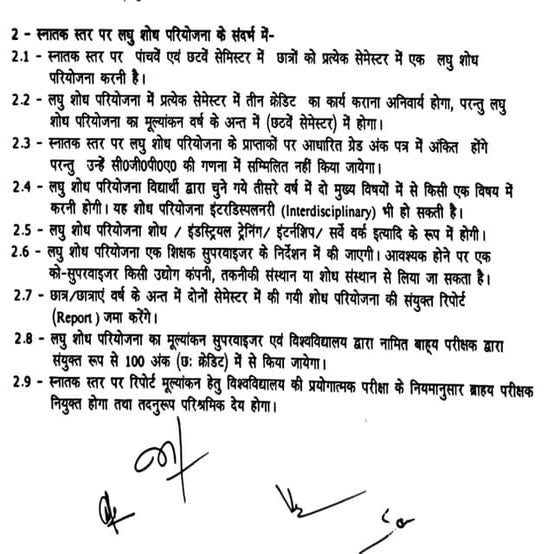 2 - स्नातक स्तर पर लघु शोध परियोजना के संदर्भ में-
2.1 - स्नातक स्तर पर पांचवें एवं छटवें सेमिस्टर में छात्रों को प्रत्येक सेमेस्टर में एक लघु शोध
परियोजना करनी है।
2.2 - लघु शोध परियोजना में प्रत्येक सेमेस्टर में तीन क्रेडिट का कार्य कराना अनिवार्य होगा, परन्तु लघु
शोध परियोजना का मूल्यांकन वर्ष के अन्त में (छटवें सेमेस्टर) में होगा।
2.3 - स्नातक स्तर पर लघु शोध परियोजना के प्राप्ताकों पर आधारित ग्रेड अंक पत्र में अंकित होंगे
परन्तु उन्हें सी०जी०पी०ए० की गणना में सम्मिलित नहीं किया जायेगा।
2.4 - लघु शोध परियोजना विद्यार्थी द्वारा चुने गये तीसरे वर्ष में दो मुख्य विषयों में से किसी एक विषय में
करनी होगी। यह शोध परियोजना इंटरडिस्पलनरी (Interdisciplinary) भी हो सकती है।
2.5 - लघु शोध परियोजना शोध / इंडस्ट्रियल ट्रेनिंग/ इंटर्नशिप/ सर्वे वर्क इत्यादि के रूप में होगी।
2.6 - लघु शोध परियोजना एक शिक्षक सुपरवाइजर के निर्देशन में की जाएगी। आवश्यक होने पर एक
को-सुपरवाइजर किसी उद्योग कंपनी, तकनीकी संस्थान या शोध संस्थान से लिया जा सकता है।
2.7 - छात्र/छात्राएं वर्ष के अन्त में दोनों सेमेस्टर में की गयी शोध परियोजना की संयुक्त रिपोर्ट
(Report) जमा करेंगे।
2.8 - लघु शोध परियोजना का मूल्यांकन सुपरवाइजर एवं विश्वविद्यालय द्वारा नामित बाह्य परीक्षक द्वारा
संयुक्त रूप से 100 अंक (छः क्रेडिट) में से किया जायेगा।
2.9 - स्नातक स्तर पर रिपोर्ट मूल्यांकन हेतु विश्वविद्यालय की प्रयोगात्मक परीक्षा के नियमानुसार ब्राहय परीक्षक
नियुक्त होगा तथा तदनुरूप परिश्रमिक देय होगा।